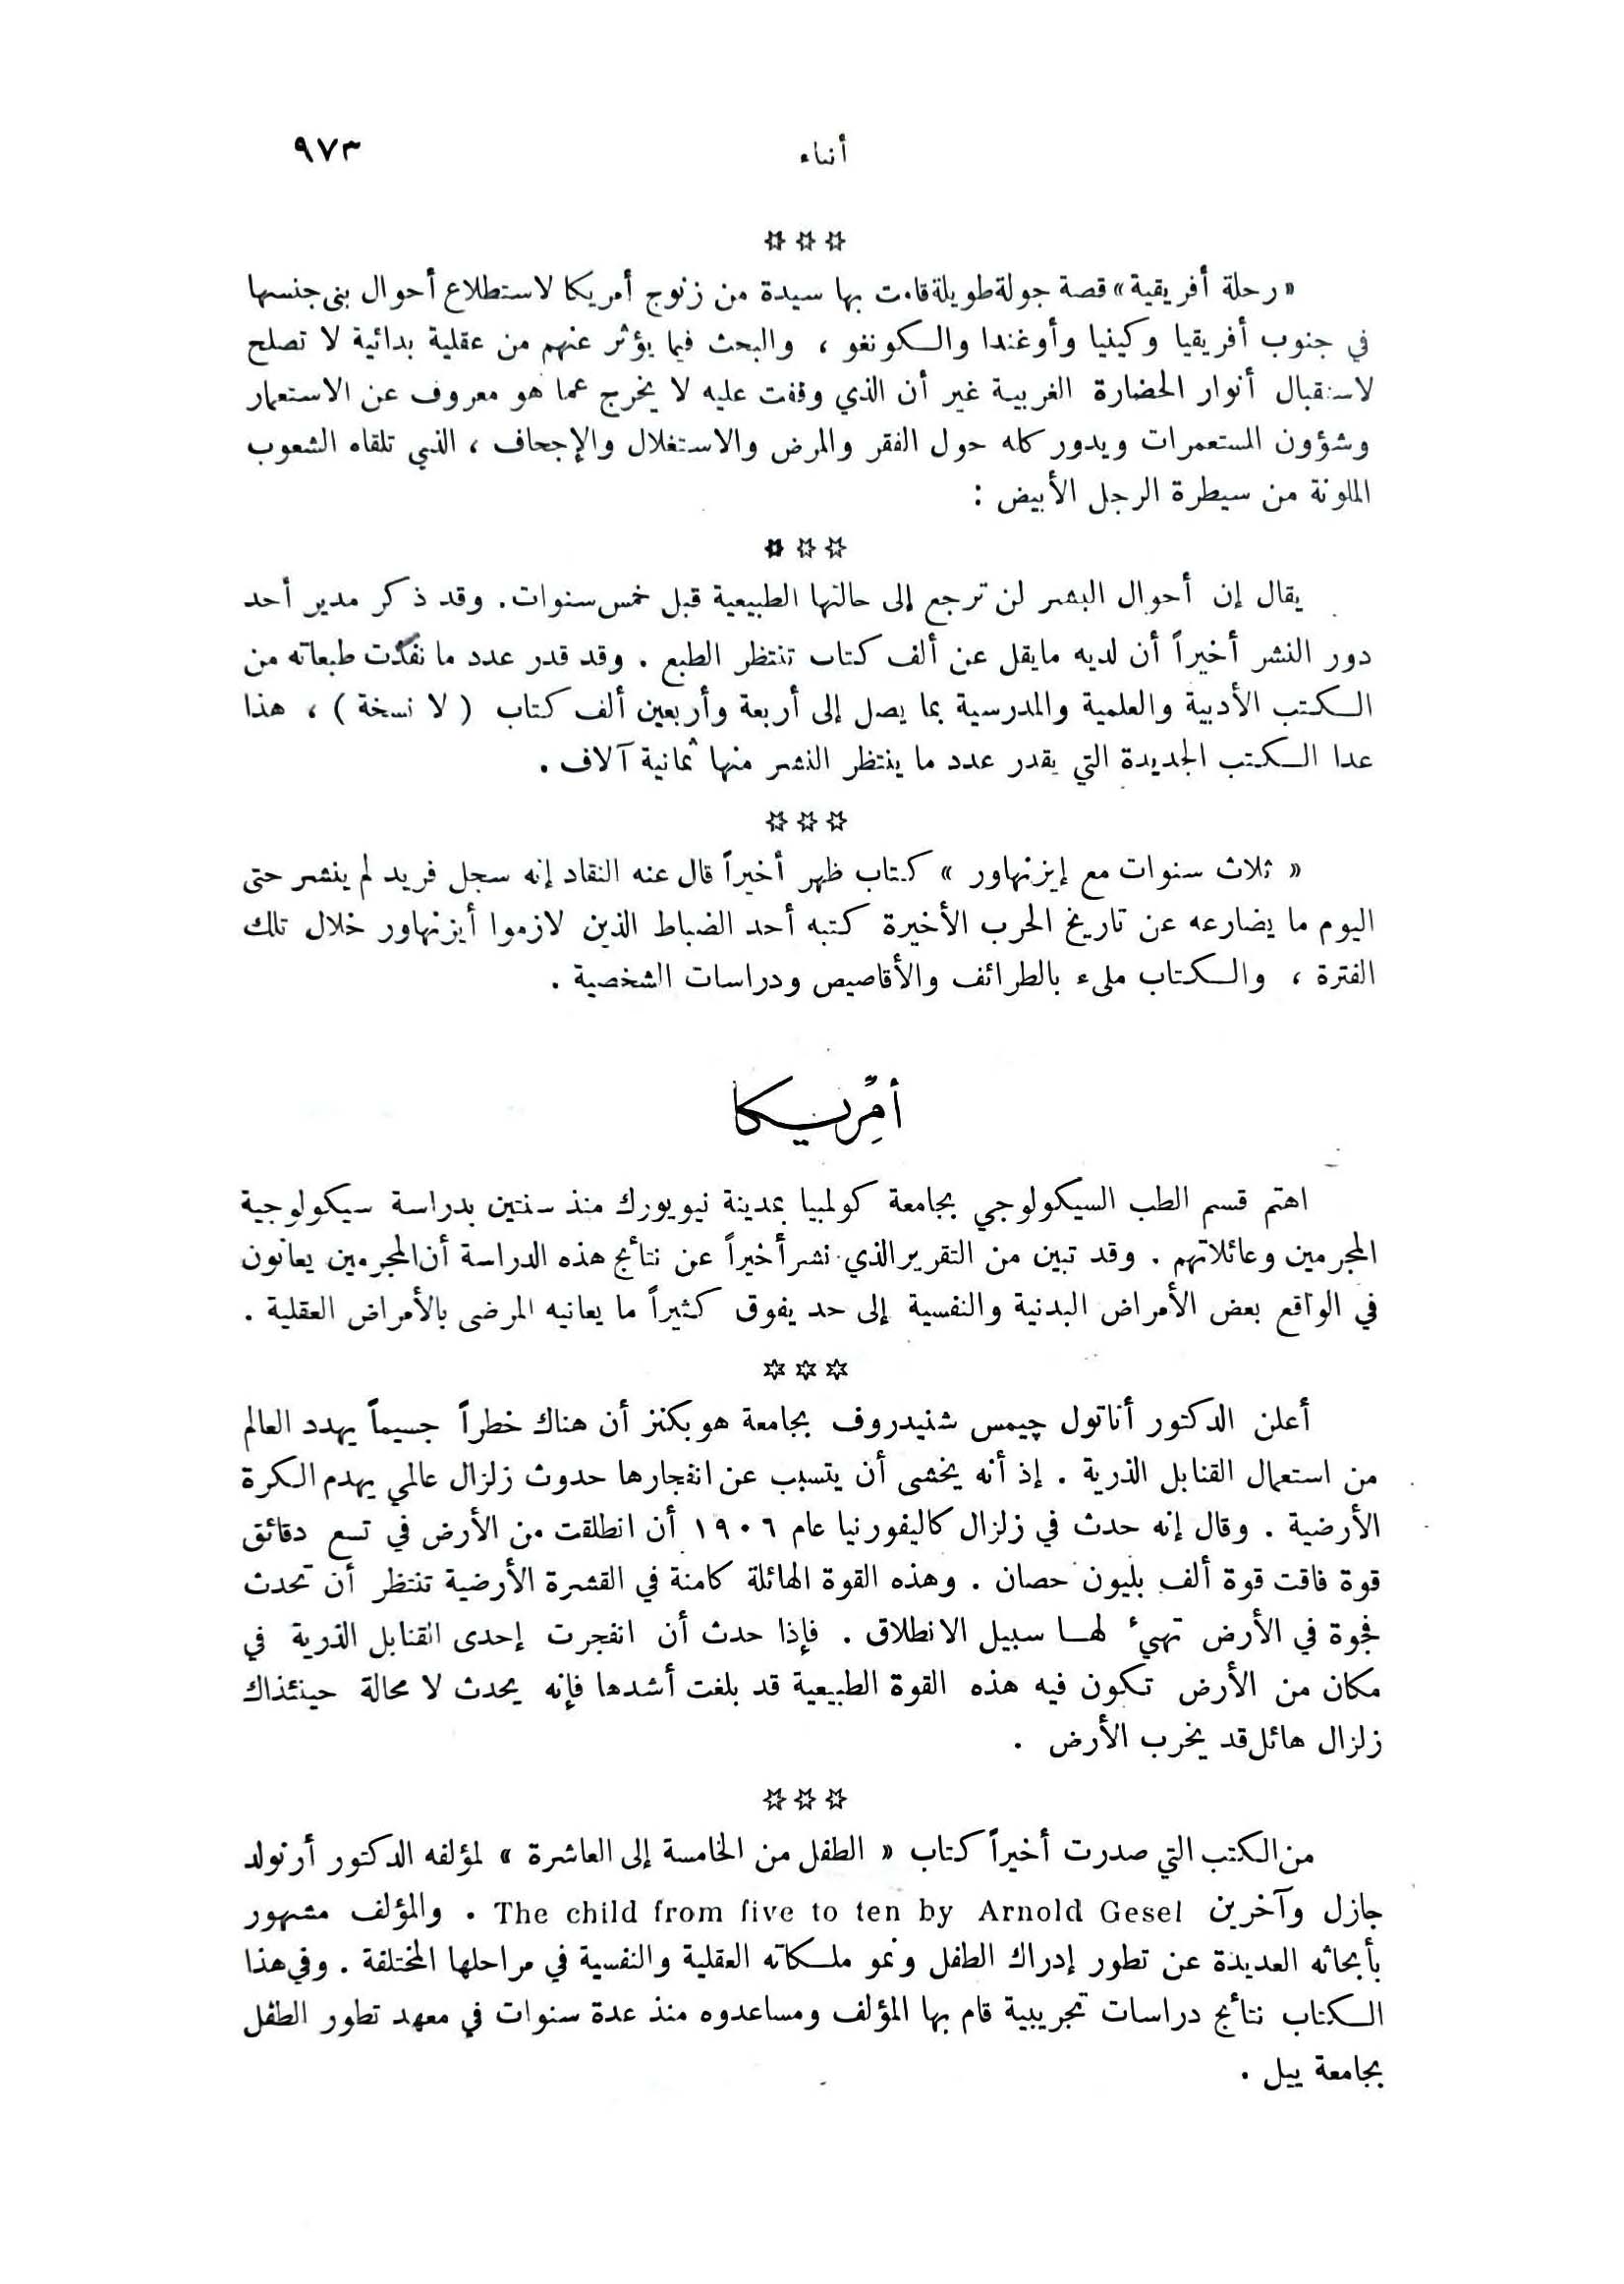 أنباء ٩٧٣
☆☆☆
«رحلة أفريقية» قصة جولة طويلة قامت بها سيدة من زنوج أمريكا لاستطلاع أحوال بنى جنسها
في جنوب أفريقيا وكينيا وأوغندا والكونغو ، والبحث فيما يؤثر عنهم من عقلية بدائية لا تصلح
لاستقبال أنوار الحضارة الغربية غير أن الذي وقفت عليه لا يخرج عما هو معروف عن الاستعمار
وشؤون المستعمرات ويدور كله حول الفقر والمرض والاستغلال والإجحاف ، الذي تلقاه الشعوب
الملونة من سيطرة الرجل الأبيض :
☆☆☆
يقال إن أحوال البشر لن ترجع إلى حالتها الطبيعية قبل خمس سنوات. وقد ذكر مدير أحد
دور النشر أخيراً أن لديه مايقل عن ألف كتاب تنتظر الطبع . وقد قدر عدد ما نفدت طبعاته من
الكتب الأدبية والعلمية والمدرسية بما يصل إلى أربعة وأربعين ألف كتاب ( لا نسخة ) ، هذا
عدا الكتب الجديدة التي يقدر عدد ما ينتظر النشر منها ثمانية آلاف .
☆☆☆
« ثلاث سنوات مع إيزنهاور » كتاب ظهر أخيراً قال عنه النقاد إنه سجل فريد لم ينشر حتى
اليوم ما يضارعه عن تاريخ الحرب الأخيرة كتبه أحد الضباط الذين لازموا أيزنهاور خلال تلك
الفترة ، والكتاب ملىء بالطرائف والأقاصيص ودراسات الشخصية .
أمريكا
اهتم قسم الطب السيكولوجي بجامعة كولمبيا بمدينة نيويورك منذ سنتين بدراسة سيكولوجية
المجرمين وعائلاتهم . وقد تبين من التقرير الذي نشر أخيراً عن نتائج هذه الدراسة أن المجرمين يعانون
في الواقع بعض الأمراض البدنية والنفسية إلى حد يفوق كثيراً ما يعانيه المرضى بالأمراض العقلية .
☆☆☆
أعلن الدكتور أناتول چيمس شنيدروف بجامعة هوبكنز أن هناك خطراً جسيماً يهدد العالم
من استعمال القنابل الذرية . إذ أنه يخشى أن يتسبب عن انفجارها حدوث زلزال عالمي يهدم الكرة
الأرضية . وقال إنه حدث في زلزال كاليفورنيا عام ١٩٠٦ أن انطلقت من الأرض في تسع دقائق
قوة فاقت قوة ألف بليون حصان . وهذه القوة الهائلة كامنة في القشرة الأرضية تنتظر أن تحدث
فجوة في الأرض تهيء لها سبيل الانطلاق . فإذا حدث أن انفجرت إحدى القنابل الذرية في
مكان من الأرض تكون فيه هذه القوة الطبيعية قد بلغت أشدها فإنه يحدث لا محالة حينئذاك
زلزال هائل قد يخرب الأرض .
☆☆☆
من الكتب التي صدرت أخيراً كتاب « الطفل من الخامسة إلى العاشرة » لمؤلفه الدكتور أرنولد
جازل وآخرين The child from five to ten by Arnold Gesel . والمؤلف مشهور
بأبحاثه العديدة عن تطور إدراك الطفل ونمو ملكاته العقلية والنفسية في مراحلها المختلفة . وفي هذا
الكتاب نتائج دراسات تجريبية قام بها المؤلف ومساعدوه منذ عدة سنوات في معهد تطور الطفل
بجامعة ييل .